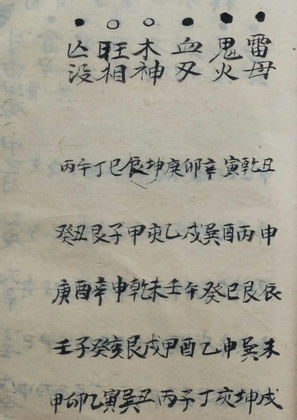 雷母
鬼火
血刃
木神
旺相
亾没
丙午丁巳辰坤庚卯辛寅乾丑
癸丑艮子甲亥乙戌巽酉丙申
庚酉辛申乾未壬午癸巳艮辰
壬子癸亥艮戌甲酉乙申巽未
甲卯乙寅巽丑丙子丁亥坤戌